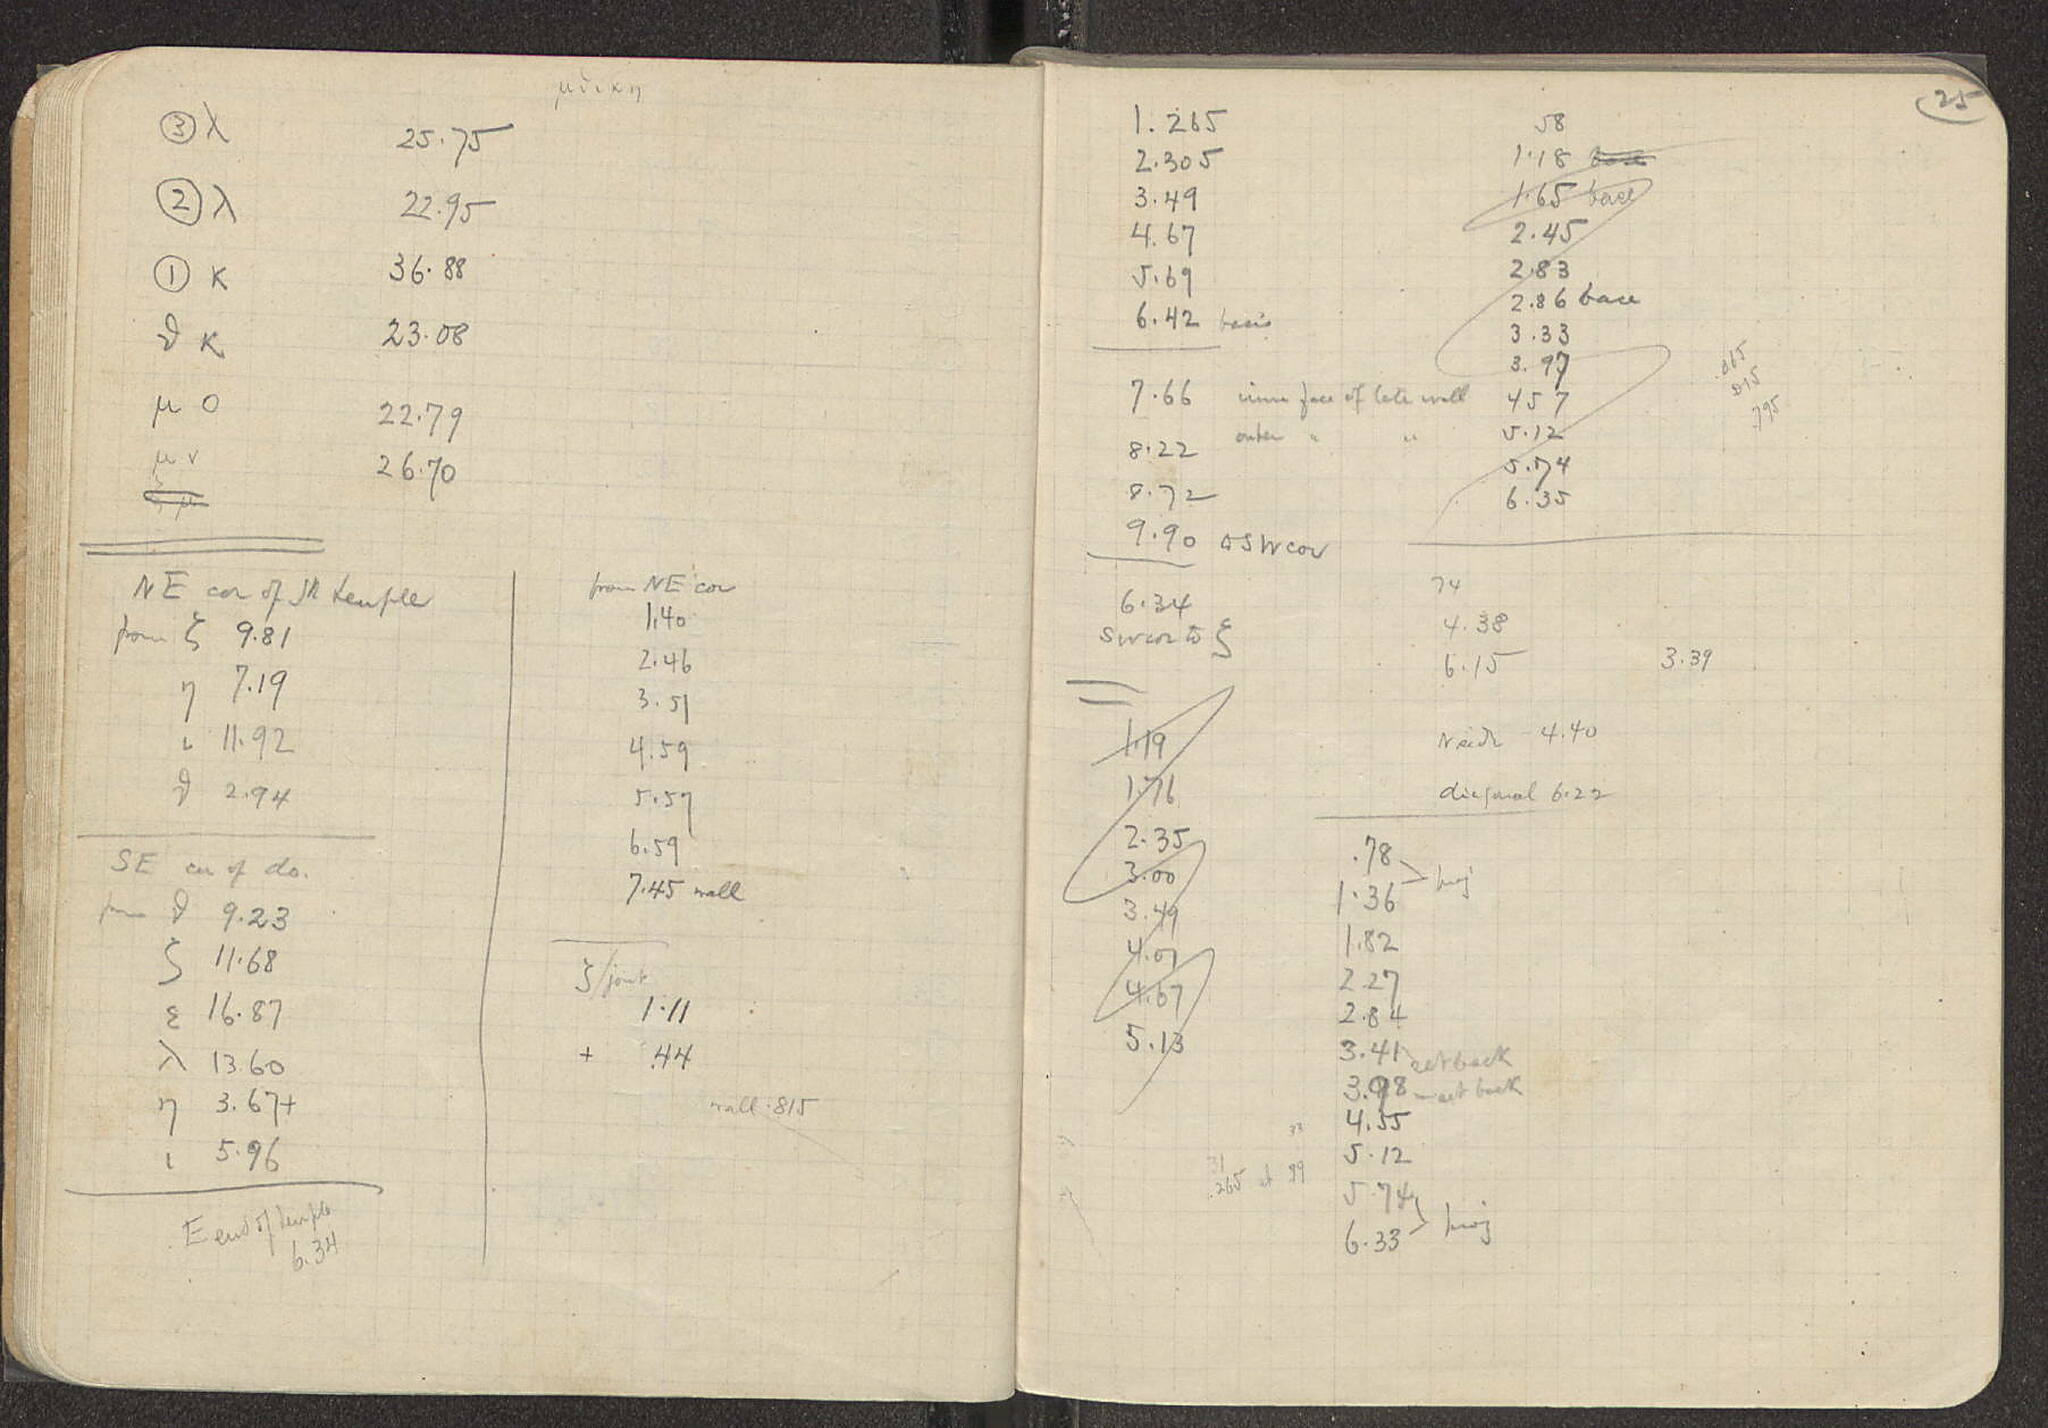 ③ λ 25.75
② λ 22.95
① κ 36.88
ϑ κ 23.08
μ ο 22.79
μ ν 26.70
NE cor of sm temple
from ζ 9.81
η 7.19
ι 11.92
ϑ 2.94
SE cor of do.
from ϑ 9.23
ζ 11.68
ε 16.87
λ 13.60
η 3.67+
ι 5.96
E end of temple
6.34
from NE cor
1.40
2.46
3.51
4.59
5.57
6.59
7.45 wall
ζ/joint
1.11
+ .44
wall .815
25
1.265
2.305
3.49
4.67
5.69
6.42 basis
7.66 inner face of late wall
8.22 outer " "
8.72
9.90 SW cor
6.34
SW cor to ξ
1.19
1.76
2.35
3.00
3.49
4.07
4.67
5.13
58
1.18 base
1.65 base
2.45
2.83
2.86 base
3.33
3.97
4.57
5.12
5.74
6.35
.815
.795
74
4.38
6.15 3.39
N side 4.40
diagonal 6.22
.78
1.36 proj
1.82
2.27
2.84
3.41 set back
3.98 set back
4.55
5.12
5.74
6.33 proj
31
.265 at 99